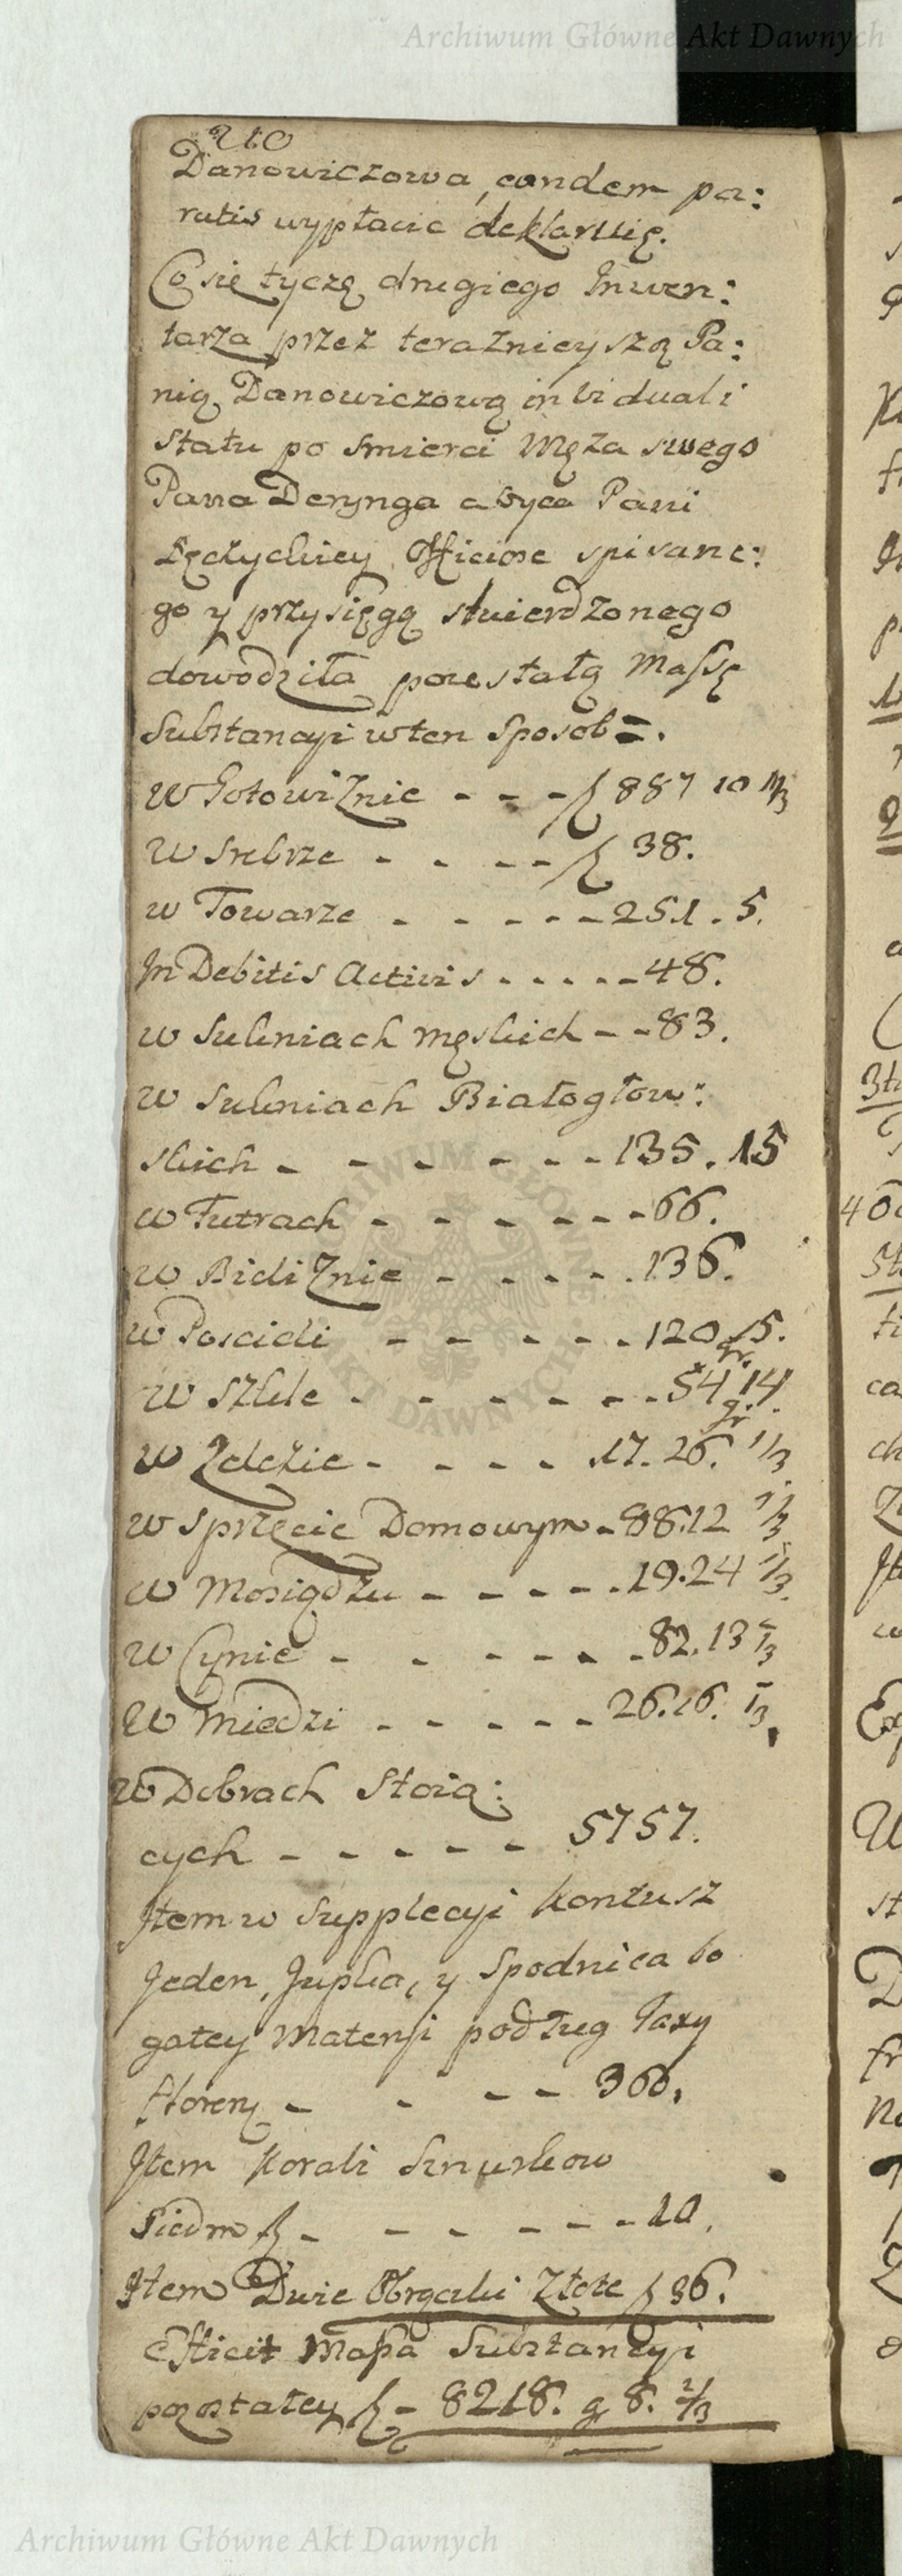 Archiwum Główne Akt Dawnych
210
Danowiczowa, eandem pa:
ratis wypłacic deklaruię.
Co się tyczę drugiego Inwen:
tarza przez teraznieyszą Pa:
nią Danowiczową in viduali
statu po smierci Męża swego
Pana Derynga a Oyca Pani
Łętyckiey Officiose spisane:
go y przysięgą stwierdzonego
dowodziła pozostałą Massę
Substancyi w ten sposob =.
W Gotowiźnie - - - f 887 10 1/3
W Srebrze - - - - f 38.
w Towarze - - - - - 251. 5.
In Debitis Activis - - - - - 48.
w Sukniach męskich - - 83.
w Sukniach Białogłow:
skich - - - - - - - 135. 15
w Futrach - - - - - - - 66.
w Bieliźnie - - - - - 136.
w Poscieli - - - - - 120 gr 5.
w Szkle - - - - - - - 54 gr 14.
w Zelezie - - - - 17. 26. 1/3
w Sprzęcie Domowym - 88.12 1/3
w Mosiądzu - - - - - 19.24 1/3.
w Cynie - - - - - - 82. 13 1/3
w Miedzi - - - - - 26.16. 1/3
w Dobrach Stoią:
cych - - - - - 5757.
Item w Supplecyi Kontusz
Jeden, Jupka, y Spodnica bo
gatey Materyi podług Taxy
floreny - - - - 360.
Item Korali Sznurkow
Siedm f - - - - - - - 10.
Item Dwie Obrączki Złote f 36.
Efficit Massa Substancyi
pozostałey f - 8218. g 8. 2/3
ARCHIWUM GŁÓWNE AKT DAWNYCH
Archiwum Główne Akt Dawnych